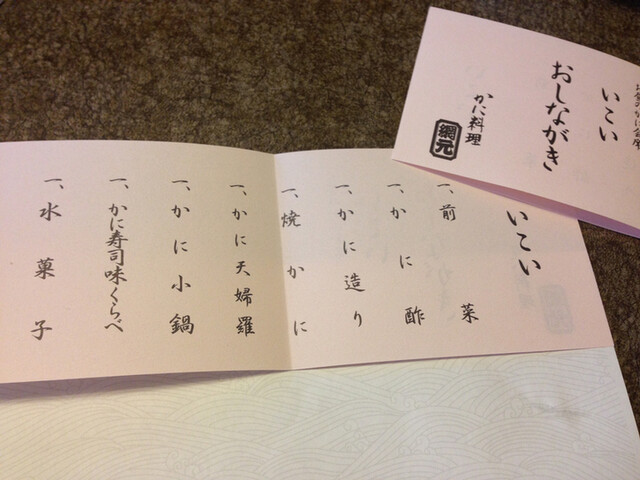 いこい
おしながき
かに料理
網元
いこい
一、前菜
一、かに酢
一、かに造り
一、焼かに
一、かに天婦羅
一、かに小鍋
一、かに寿司味くらべ
一、水菓子